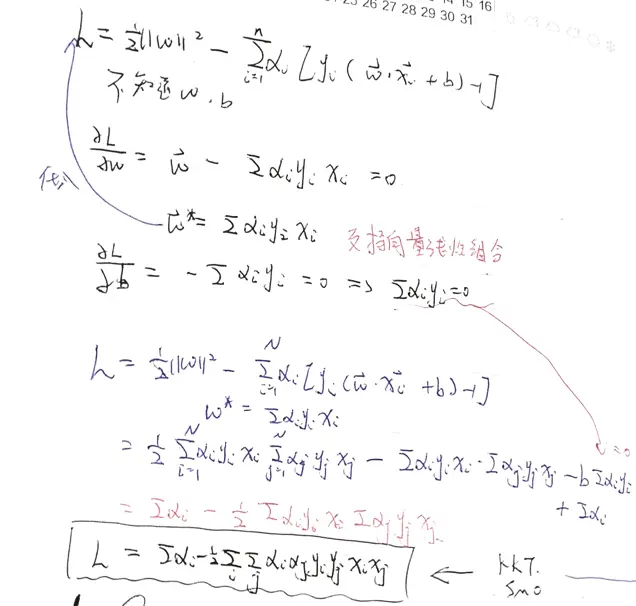 14 15 16
25 26 27 28 29 30 31
L = ½||w||² - Σᵢ₌₁ⁿ αᵢ [yᵢ (w⃗·x⃗ᵢ + b) -1]
不知道 w, b
∂L/∂w = w⃗ - Σαᵢyᵢxᵢ = 0
代入
w⃗* = Σαᵢyᵢxᵢ 支持向量线性组合
∂L/∂b = -Σαᵢyᵢ = 0 => Σαᵢyᵢ=0
L = ½||w||² - Σᵢ₌₁ᴺ αᵢ[yᵢ(w⃗·x⃗ᵢ + b) -1]
w* = Σαᵢyᵢxᵢ
=0
= ½ Σᵢ₌₁ᴺ αᵢyᵢxᵢ Σⱼ₌₁ᴺ αⱼyⱼxⱼ - Σαᵢyᵢxᵢ·Σαⱼyⱼxⱼ - bΣαᵢyᵢ
+ Σαᵢ
= Σαᵢ - ½ Σαᵢyᵢxᵢ Σαⱼyⱼxⱼ
L = Σαᵢ - ½ΣᵢΣⱼ αᵢαⱼyᵢyⱼxᵢxⱼ ← KKT.
SMO